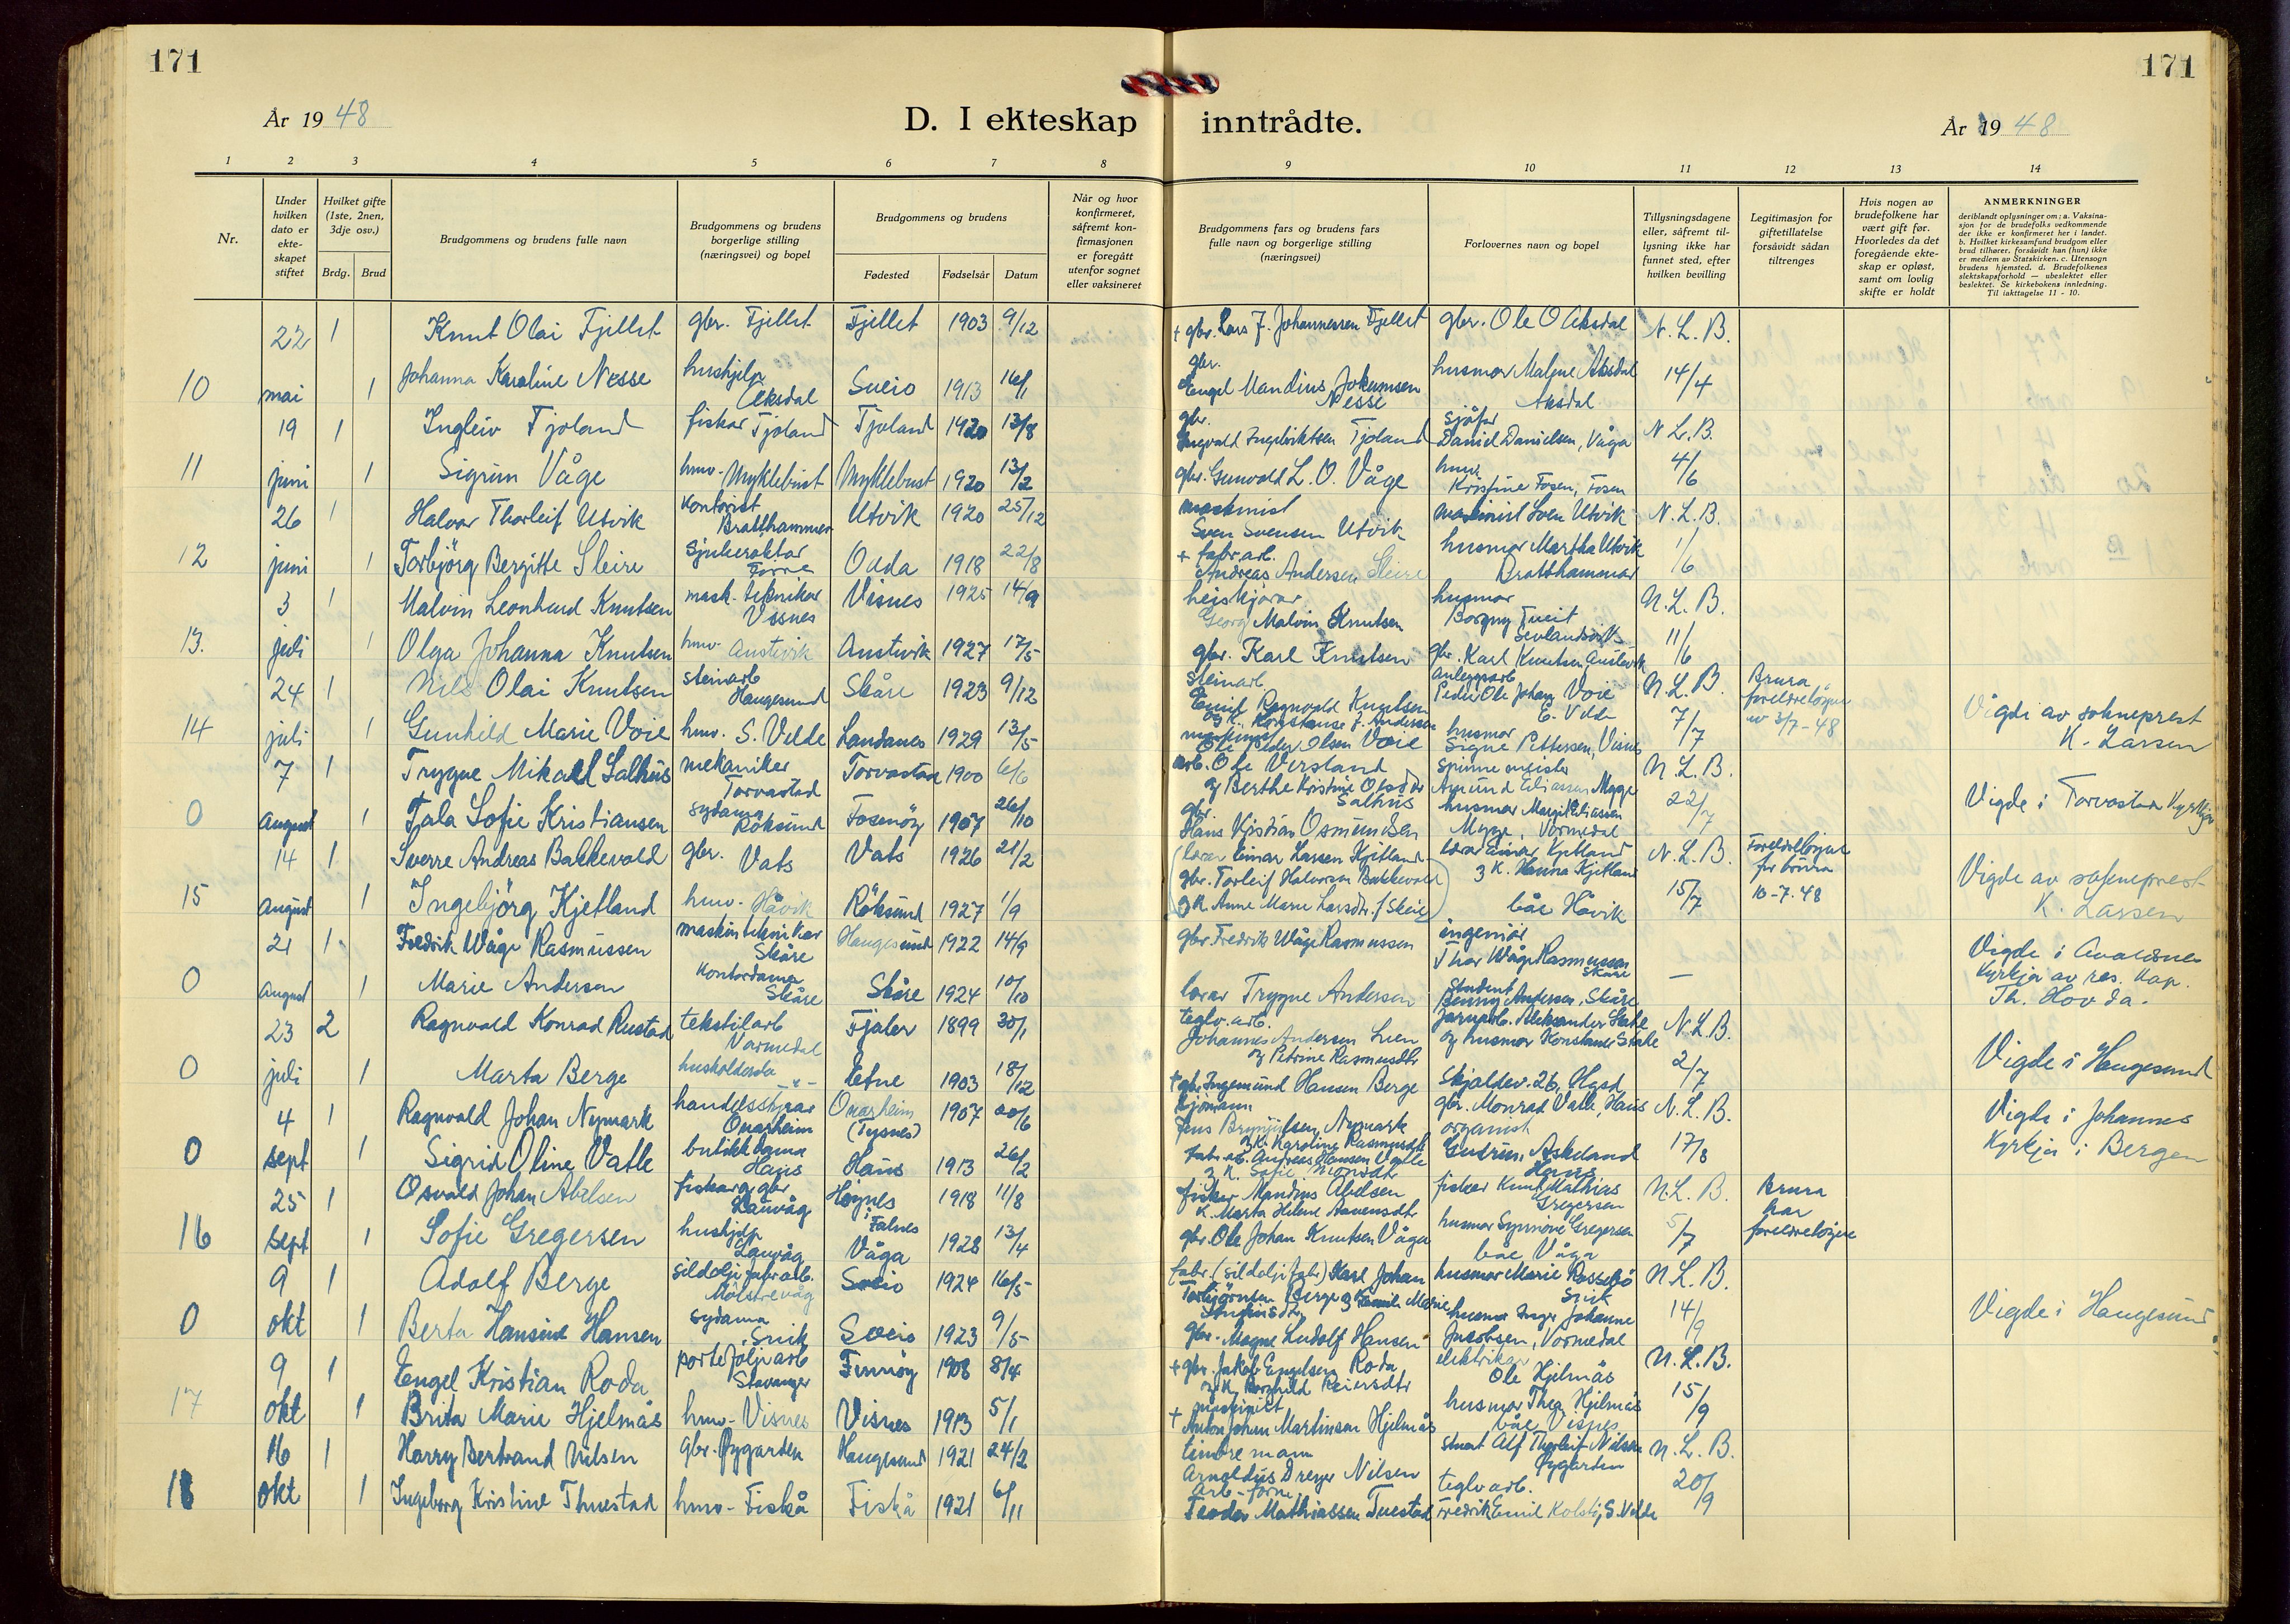 171
171
År 1948
D. I ekteskap inntrådte.
År 1948
1 2 3 4 5 6 7 8 9 10 11 12 13 14
Nr.
Under hvilken dato er ekte- skapet stiftet
Hvilket gifte (1ste, 2nen, 3dje osv.)
Brdg. Brud
Brudgommens og brudens fulle navn
Brudgommens og brudens borgerlige stilling (næringsvei) og bopel
Brudgommens og brudens
Fødested Fødselsår Datum
Når og hvor konfirmeret, såfremt kon- firmasjonen er foregått utenfor sognet eller vaksineret
Brudgommens fars og brudens fars fulle navn og borgerlige stilling (næringsvei)
Forlovernes navn og bopel
Tillysningsdagene eller, såfremt til- lysning ikke har funnet sted, efter hvilken bevilling
Legitimasjon for giftetillatelse forsåvidt sådan tiltrenges
Hvis nogen av brudefolkene har vært gift før. Hvorledes da det foregående ekte- skap er opløst, samt om lovlig skifte er holdt
ANMERKNINGER
deriblandt oplysninger om: a. Vaksina- sjon for de brudefolks vedkommende der ikke er konfirmeret her i landet. b. Hvilket kirkesamfund brudgom eller brud tilhører, forsåvidt han (hun) ikke er medlem av Statskirken. c. Utensogn brudens hjemsted. d. Brudefolkenes slektskapsforhold — ubeslektet eller beslektet. Se kirkebokens innledning. Til iakttagelse 11 - 10.
22 1 Knut Olai Fjellet gbr. Fjellet Fjellet 1903 9/12 + gbr. Lars J. Johannessen Fjellet gbr. Ole O Aksdal N. L. B.
10 mai 1 Johanna Karoline Nesse hushjelp Aksdal Sveio 1913 16/1 gbr. Engel Mandius Jokumsen Nesse husmor Malene Aksdal Aksdal 14/4
19 1 Ingleiv Tjoland fiskar Tjoland Tjoland 1920 13/8 gbr. Ingvald Ingebriktsen Tjoland sjøfør Daniel Danielsen, Våga N. L. B.
11 juni 1 Sigrun Våge husv. Myklebust Myklebust 1920 13/2 gbr. Gunvald L. O. Våge husv. Kristine Fosen, Fosen 4/6
26 1 Halvor Thorleif Utvik kontorist Bratthammer Utvik 1920 25/12 maskinist Sven Svensen Utvik maskinist Sven Utvik N. L. B.
12 juni 1 Torbjörg Bergitte Sleire sjukerøktar Odda 1918 22/8 + fabr.arb. Andreas Andersen Sleire husmor Martha Utvik Bratthammar 1/6
3 1 Malvin Leonhard Knutsen mask. tekniker Visnes Visnes 1925 14/9 heiskjørar Georg Malvin Knutsen husmor Borgny Tveit Sevlandsvik N. L. B.
13. juli 1 Olga Johanna Knutsen husv. Austvik Austvik 1927 17/5 gbr. Karl Knutsen gbr. Karl Knutsen, Austvik 11/6
24 1 Nils Olai Knutsen steinarb Haugesund Skåre 1923 9/12 steinarb Emil Ragnvald Knutsen og K. Konstanse J. Andersen Anleggsarb Peder Ole Johan Voie N. L. B. Brura foreldreløyve av 3/7-48
14 juli 1 Gunhild Marie Voie husv. S. Velde Landanes 1929 13/5 maskinist Ole Peder Olsen Voie husmor Signe Pettersen, Visnes 7/7 Vigde av sokneprest K. Larsen
7 1 Trygve Mikael Salhus mekaniker Torvastad Torvastad 1900 6/6 arb. Ole Versland og Berthe Kristine Olsdtr Salhus spinnemeister Amund Eliassen Mygge N. L. B.
0 August 1 Tala Sofie Kristiansen sydama Röksund Fosenöy 1907 26/10 gbr. Hans Kristian Osmundsen husmor Margit Eliassen Mygge, Vormedal 22/7 Vigde i Torvastad Kyrkje
14 1 Sverre Andreas Bakkevold gbr. Vats Vats 1926 21/2 (lærar Einar Larsen Kjetland gbr. Torleif Halvorsen Bakkevold lærar Einar Kjetland N. L. B. Foreldreløyve for brura
15 August 1 Ingebjörg Kjetland husv. Håvik Röksund 1927 1/9 og K. Anne Marie Larsdtr. f. Skeie) og K. Hanna Kjetland båe Håvik 15/7 10-7.48 Vigde av sokneprest K. Larsen
21 1 Fredrik Våge Rasmussen maskintekniker Skåre Haugesund 1922 14/9 gbr. Fredrik Våge Rasmussen ingeniør Thor Våge Rasmussen Skåre
0 August 1 Marie Andersen kontordama Skåre Skåre 1924 10/10 lærar Trygve Andersen Student Benny Andersen, Skåre — Vigde i Avaldsnes Kyrkja av res. Kap. Th. Hovda.
23 2 Ragnvald Konrad Rustad tekstilarb Vormedal Fjaler 1899 30/1 teglv.arb. Johannes Andersen Lien og Petrine Rasmusdtr Jarnarb. Aleksander Stakle og husmor Konstanse Stakle N. L. B.
0 juli 1 Marta Berge husholderske -"- Etne 1903 18/12 + gbr. Ingemund Hansen Berge Skjoldev. 26, Hgsd 2/7 Vigde i Haugesund
4 1 Ragnvald Johan Nymark handelsstyrar Onarheim Onarheim (Tysnes) 1907 20/6 Sjömann Jens Brynjulfsen Nymark og K. Karoline Rasmusdtr gbr. Monrad Vatle, Haus N. L. B.
0 sept 1 Sigrid Oline Vatle butikkdama Haus Haus 1913 26/2 Fabr.arb. Andreas Hansen Vatle og K. Sofie Monsdtr organist Gudrun Askeland Haus 17/8 Vigde i Johannes Kyrkja i Bergen
25 1 Osvald Johan Abelsen fiskar og gbr Lanvåg Høynes i Falnes 1918 11/8 fisker Mandius Abelsen K. Marta Helene fiskar Knut Mathias Gregersen N. L. B. Brura har foreldreløyve
16 sept 1 Sofie Gregersen hushjelp Lanvåg Våga 1928 13/4 gbr. Ole Johan Knutsen Våga husmor Synnöve Gregersen båe Våga 5/7
9 1 Adolf Berge sildoljefabr.arb. Mölstrevåg Sveio 1924 16/5 fabr. (sildoljefabr) Karl Johan Torbjörnsen Berge husmor Marie Rossebö Snik N. L. B.
0 okt 1 Berta Hansine Hansen sydama Snik Sveio 1923 9/5 gbr. Magne Ludolf Hansen husmor Inger Johanne Jacobsen, Vormedal 14/9 Vigde i Haugesund
9 1 Engel Kristian Roda portefoljearb Stavanger Finnöy 1908 8/4 + gbr. Jakob Engelsen Roda og K. Borghild Reiersdtr elektriker Ole Hjelmås N. L. B.
17 okt 1 Brita Marie Hjelmås husv. Visnes Visnes 1913 5/1 + maskinist Anton Johan Martinsen Hjelmås husmor Thea Hjelmås båe Visnes 15/9
16 1 Harry Bertrand Nilsen gbr. Øygarden Haugesund 1921 24/2 tømremann Arnoldus Dreyer Nilsen stuert Alf Thorleif Nilsen Øygarden N. L. B.
18 okt 1 Ingeborg Kristine Thuestad husv. Fiskå Fiskå 1921 6/11 arb-form. Teodor Mathiassen Tuestad teglv.arb. Fredrik Emil Kolstö, S. Velde 20/9